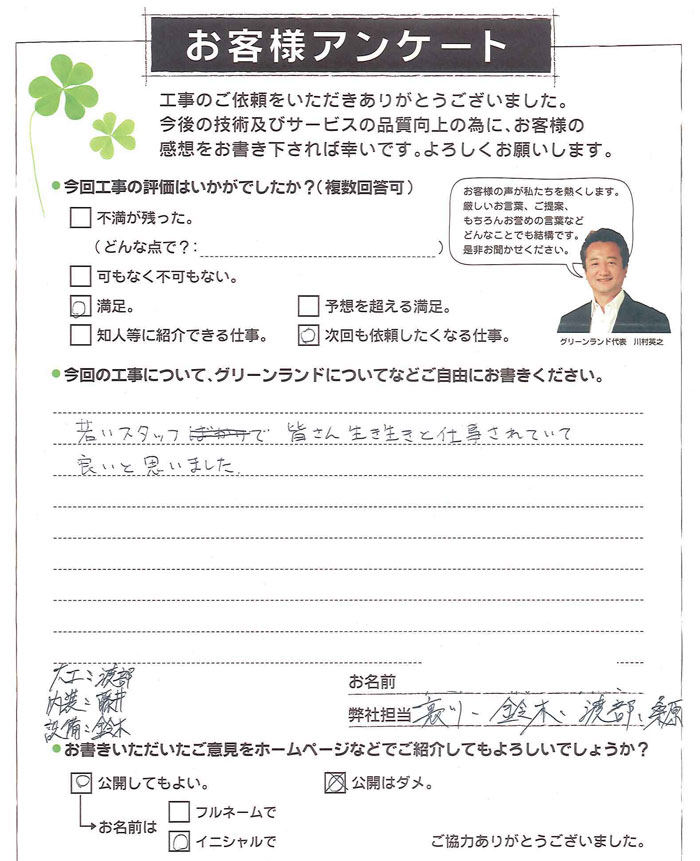 お客様アンケート
工事のご依頼をいただきありがとうございました。
今後の技術及びサービスの品質向上の為に、お客様の
感想をお書き下されば幸いです。よろしくお願いします。
●今回工事の評価はいかがでしたか?(複数回答可)
お客様の声が私たちを熱くします。
厳しいお言葉、ご提案、
もちろんお誉めの言葉など
どんなことでも結構です。
是非お聞かせください。
グリーンランド代表 川村英之
不満が残った。
(どんな点で?: )
可もなく不可もない。
満足。
予想を超える満足。
知人等に紹介できる仕事。
次回も依頼したくなる仕事。
●今回の工事について、グリーンランドについてなどご自由にお書きください。
若いスタッフばかりで 皆さん 生き生きと仕事されていて
良いと思いました。
大工:渡部
内装:藤井
設備:鈴木
お名前
弊社担当 鈴木、渡部、桑原
●お書きいただいたご意見をホームページなどでご紹介してもよろしいでしょうか?
公開してもよい。
公開はダメ。
→お名前は
フルネームで
イニシャルで
ご協力ありがとうございました。